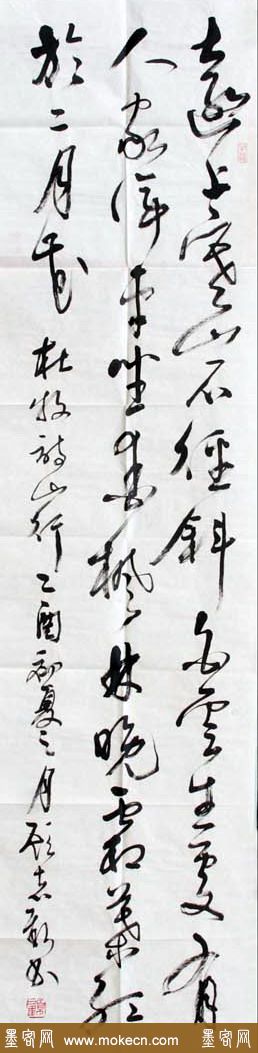 遠上寒山石徑斜白雲生處有
人家停車坐愛楓林晚霜葉紅
於二月花 杜牧詩山行 乙酉初夏之月 志書
墨客网 www.mokecn.com 墨客网